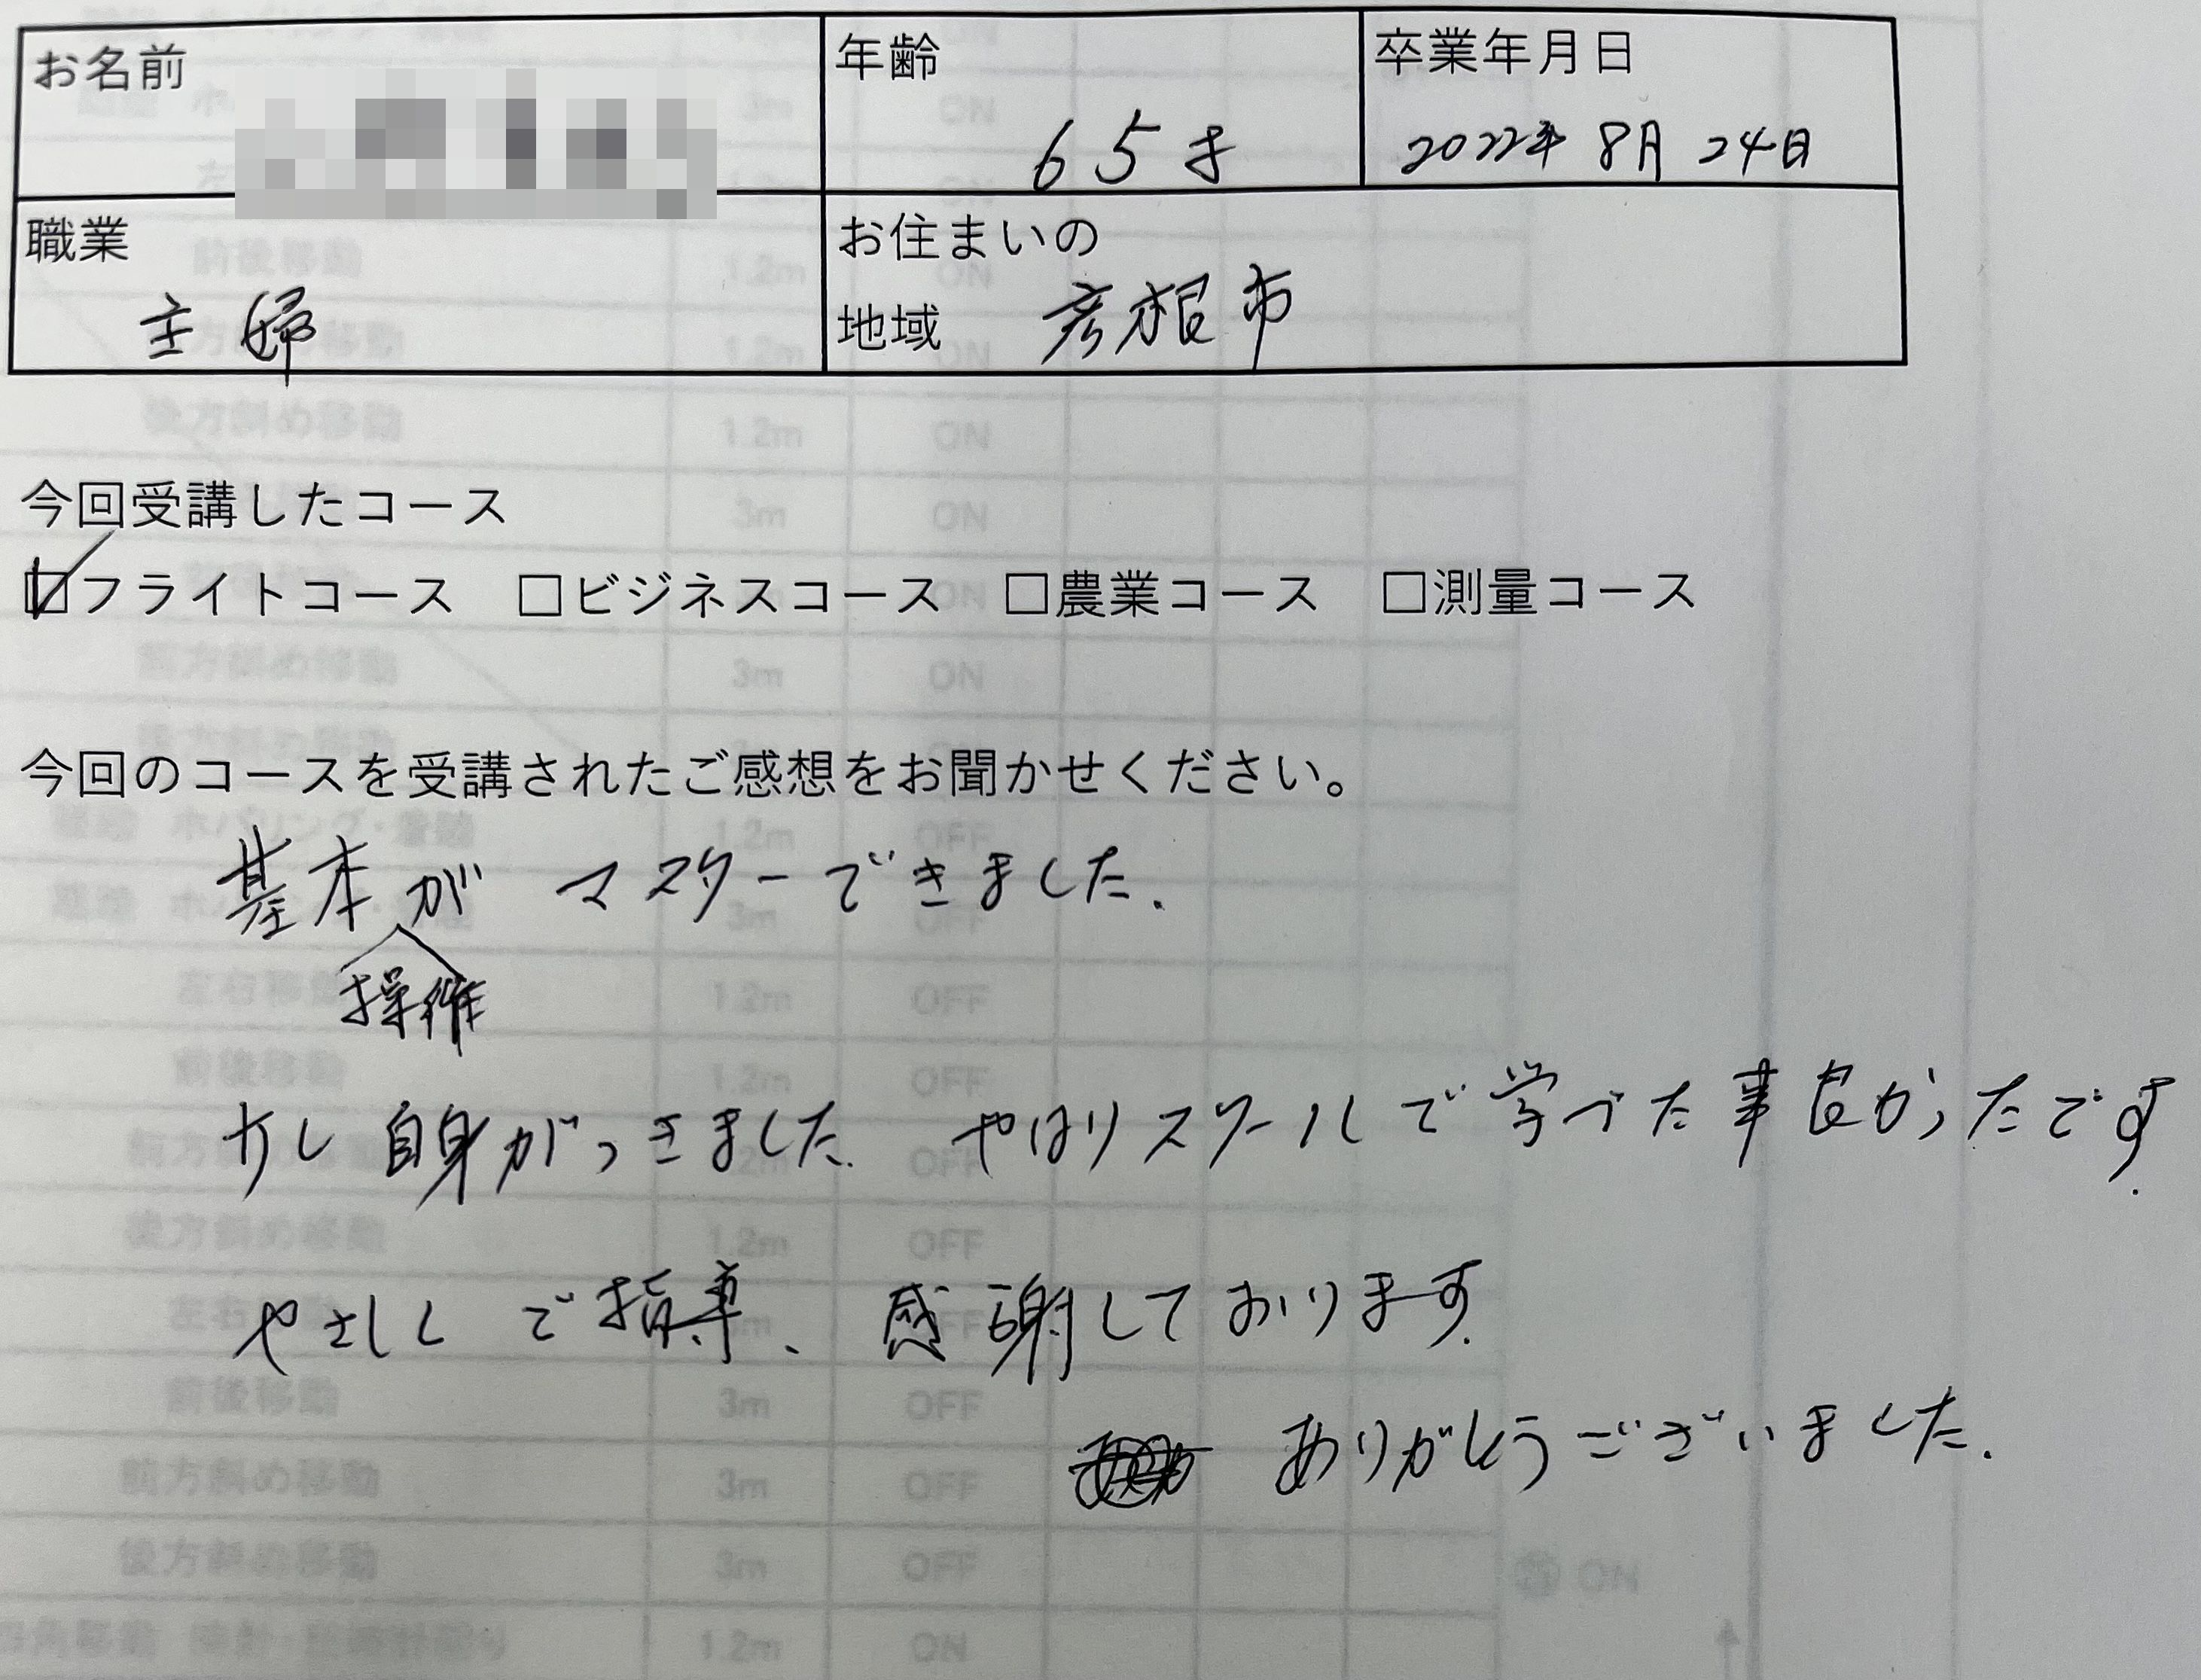 お名前
年齢
卒業年月日
65才
2022年 8月 24日
職業
主婦
お住まいの
地域 彦根市
今回受講したコース
☑フライトコース □ビジネスコース □農業コース □測量コース
今回のコースを受講されたご感想をお聞かせください。
基本が マスターできました.
操作
少し自身がつきました. やはりスクールで学べた事良かったです.
やさしく ご指導、感謝しております.
ありがとうございました.